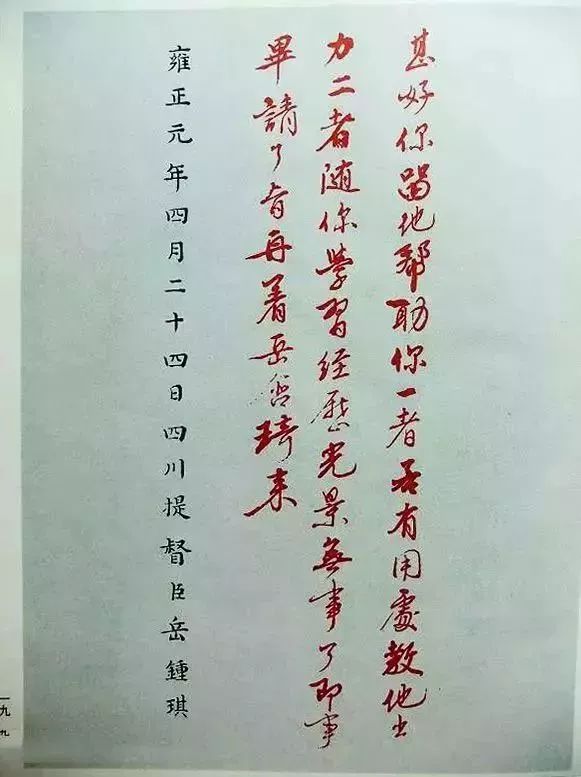 甚好你留他帮助你一者若有用處教他出
力二者随你學習經歷光景無事了即事
畢請了旨再着岳含琦来
雍正元年四月二十四日四川提督臣岳鍾琪
一九九